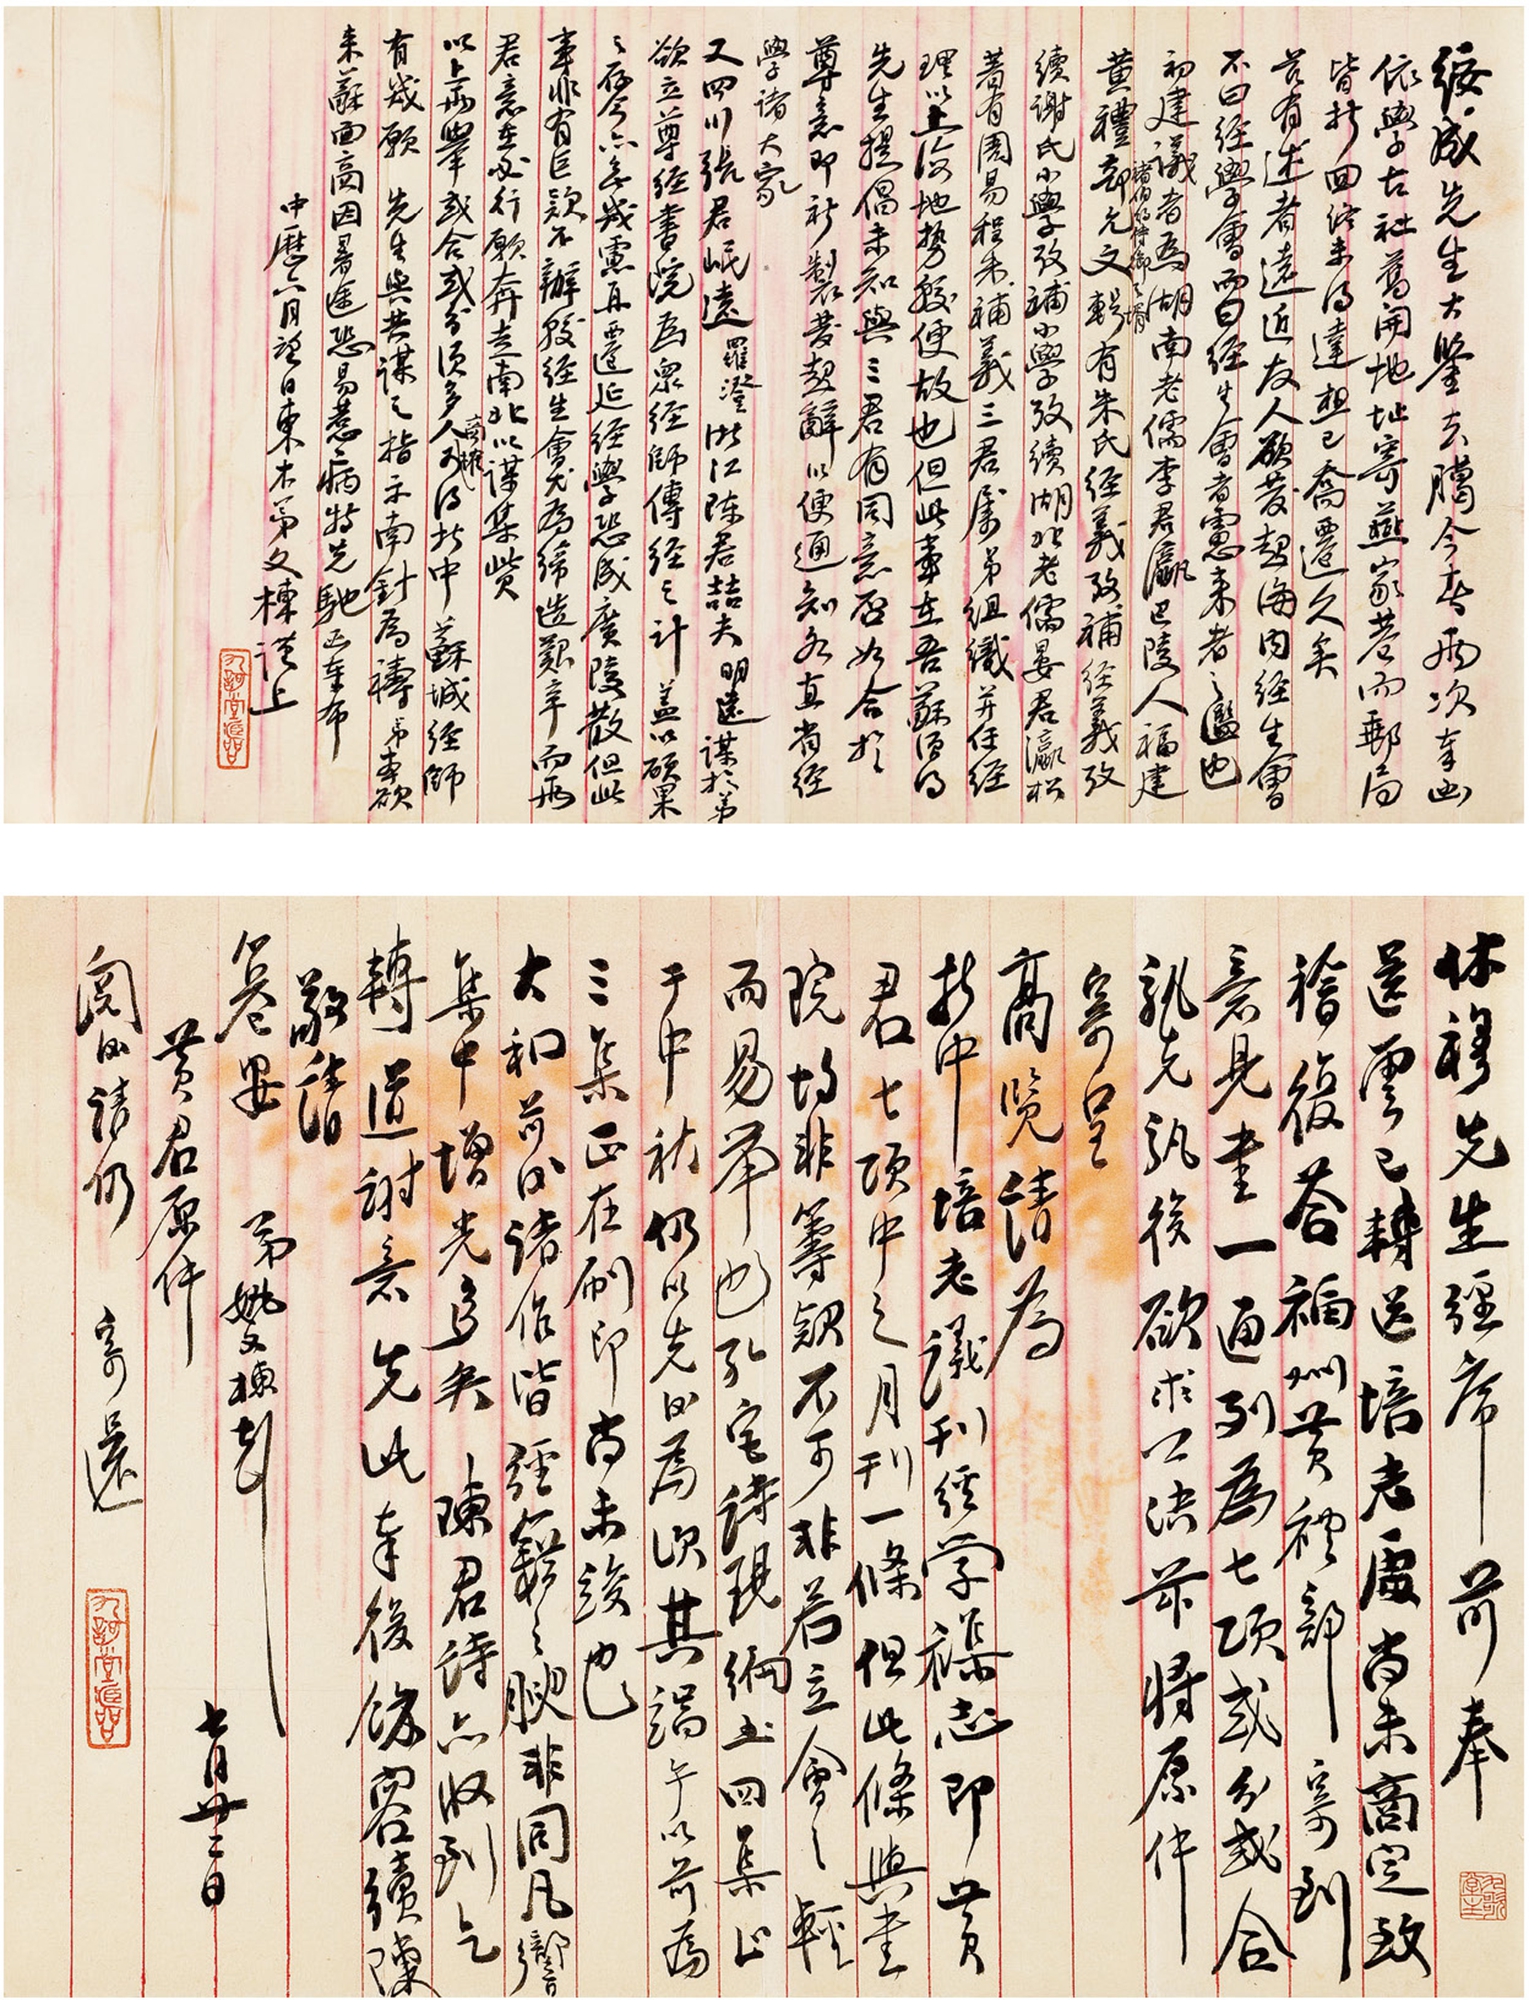 綬成先生大鑒去臘今春兩次奉函
依學古社舊開地址寄燕家巷而郵局
皆批回終未得達想已喬遷久矣
茲有述者遠近友人欲發起海內經生會
不曰經學會而曰經生會者慮來者之濫也
初建議者為湖南老儒李君瀛巴陵人福建
黃禮部允文
有朱氏經義攷補經義攷
續謝氏小學攷補小學攷續湖北老儒晏君瀛松
著有周易程朱補義三君屬弟組織并任經
理以上海地勢較便故也但此事在吾蘇須得
先生提倡未知與三君有同意否如合於
尊意即祈製發起辭以便通知各直省經
學諸大家
又四川張君岷遠羅澄浙江陳君喆夫明遠謀於弟
欲立尊經書院為眾經師傳經之計蓋以碩果
之存今亦無幾慮再遷延經學恐成廣陵散但此
事非有巨款不辦較經生會尤為締造艱辛而兩
君意在必行願奔走南北以謀集貲
以上兩舉或合或分須多人商榷乃得於中蘇城經師
有幾願先生與共謀之指示南針為禱弟本欲
來蘇面商因暑途恐易惹病特先馳函奉布
中曆六月望日東木弟文棟謹上
林穆先生經席前奉
還雲已轉送培老處尚未商定致
稽復荅福州黃禮部寄到
意見書一通列為七項或分或合
孰先孰後欲求公決茲將原件
寄呈
高覽請為
折中培老議刊經學襍志即黃
君七項中之月刊一條但此條與書
院均非籌款不可非若立會之輕
而易舉也孔宅詩現編五四集止
于中秋仍以先後為次其端午以前為
三集正在刷印尚未竣也
大和前後諸作皆經籍之腴非同凡響
集中增光多矣陳君詩亦收到乞
轉道謝意先此奉復餘容續陳
敬請
箸安 弟姚文棟頓
七月廿二日
黃君原件
閱後請仍寄還